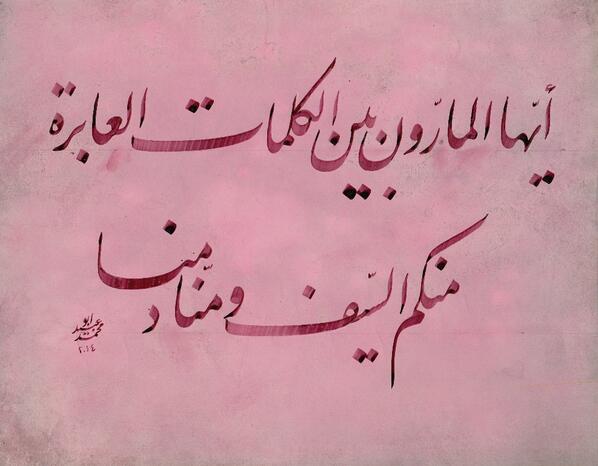 أيّها المارّون بين الكلمات العابرة
منكم السّيف ومنّا دمنا
ابو
عبيد
محمد
٢٠١٤